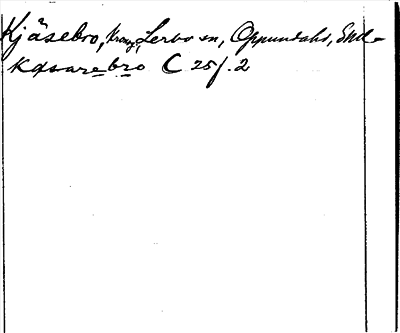 Kjäsebro, krog, Lerbo sn, Oppunda hd, Smd –
Kæsarebro C 25/. 2